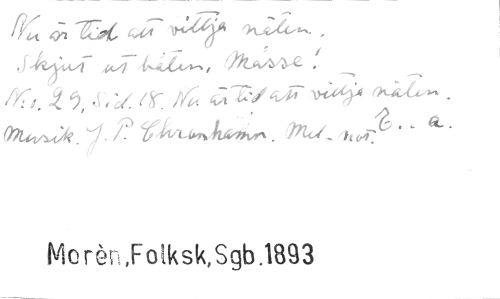 Nu är tid att vittja näten.
Skjut ut båten, Mässe!
N:o. 29, Sid. 18. Nu är tid att vittja näten.
Musik. J. P. Chronhamn. Mel. not. E . . a.
Morèn,Folksk,Sgb.1893